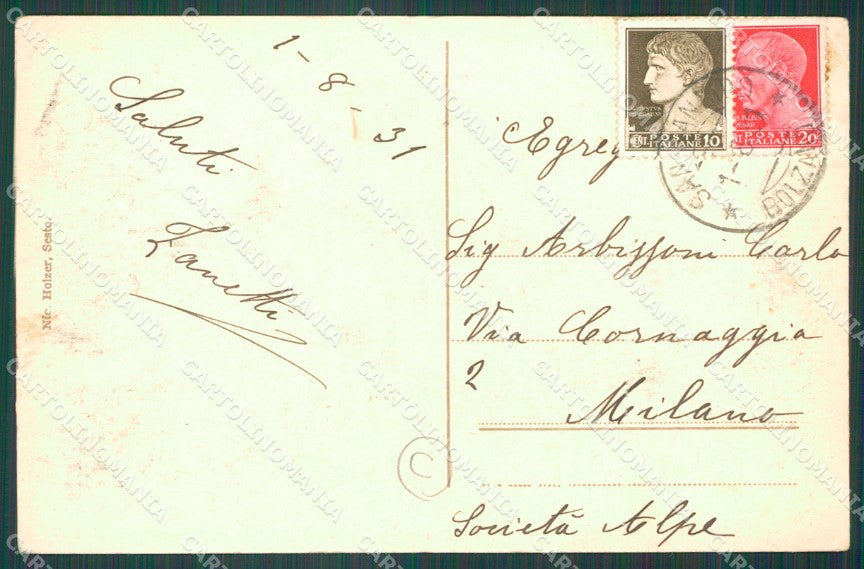 1-8-31
Saluti
Zanetti
Nic. Holzer, Sesto.
Egreg
Sig Arbissoni Carlo
Via Cornaggia
2
Milano
Società Alpe
C
POSTE
CENT. ITALIANE 10
POSTE
CENT. ITALIANE 20
SAN
BOLZA
CARTOLINOMANIA